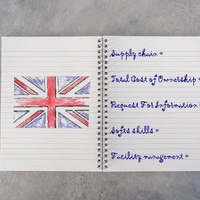 Supply chain =
Total Cost of Ownership =
Request For Information =
Softs skills =
Facility management =